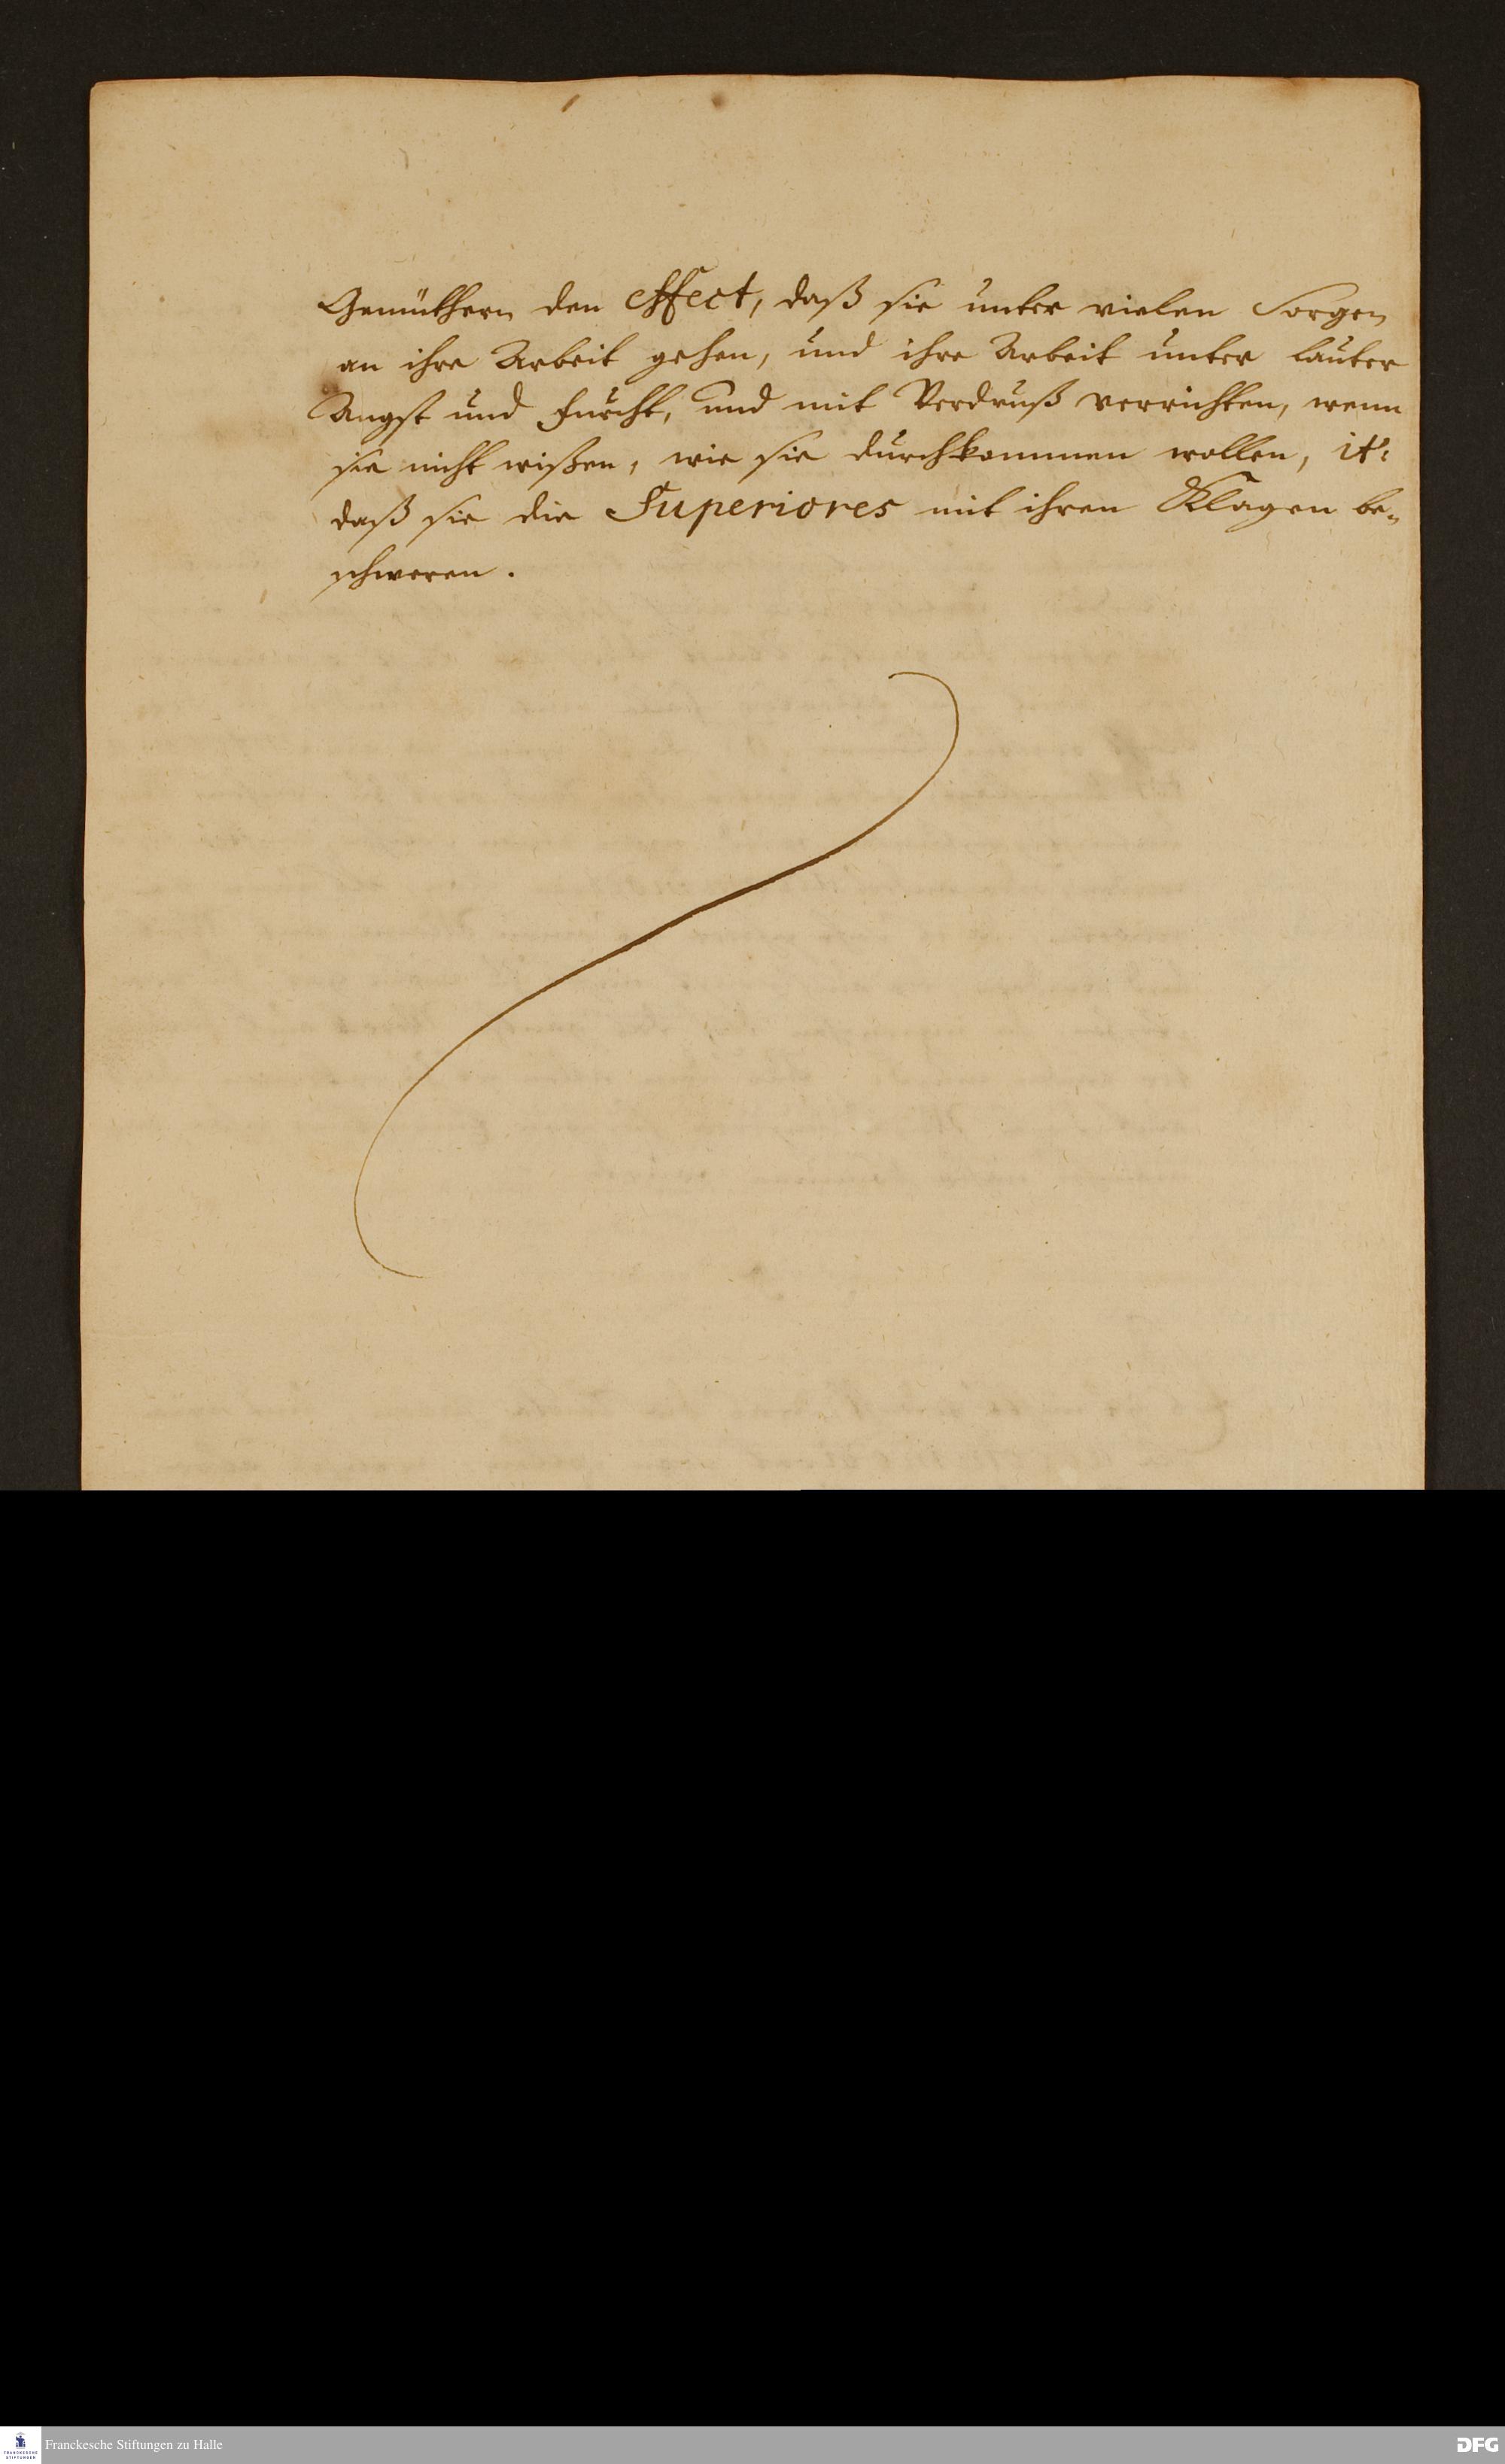 Gemüthern den effect, daß sie unter vielen Sorgen
an ihre Arbeit gehen, und ihre Arbeit unter lauter
Angst und Furcht, und mit Verdruß verrichten, wenn
sie nicht wißen, wie sie durchkommen wollen, it:
daß sie die Superiores mit ihren Klagen be-
schweren.
Franckesche Stiftungen zu Halle
FRANCKESCHE STIFTUNGEN
DFG